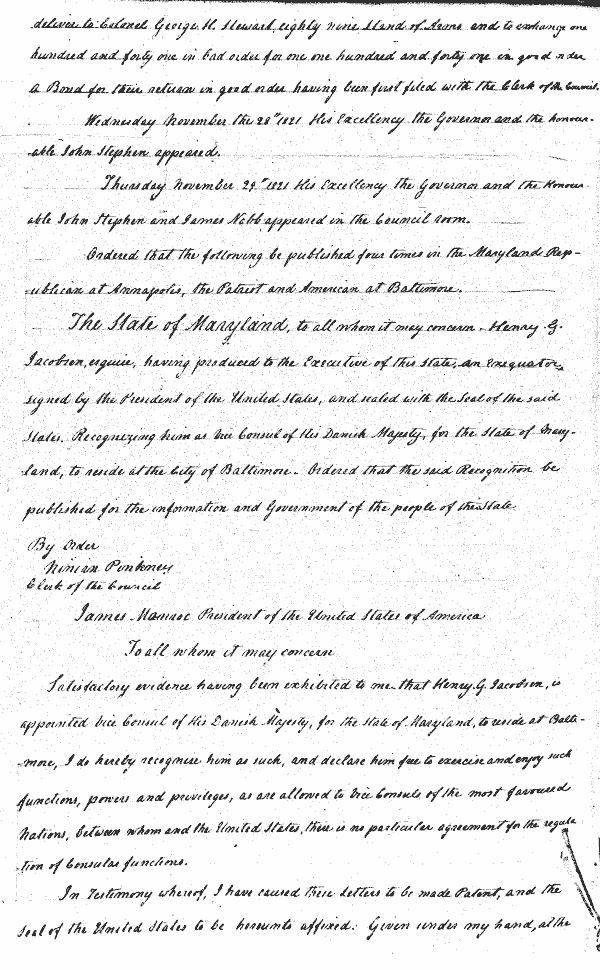 deliver to Colonel George H. Steward, eighty nine Stand of Arms and to exchange one
hundred and forty one in bad order for one one hundred and forty one in good order
a Bond for their return in good order having been first filed with the Clerk of the Council.
Wednesday November the 28th 1821 His Excellency the Governor and the honour-
able John Stephen appeared.
Thursday November 29th 1821 His Excellency the Governor and the Honour-
able John Stephen and James Nabb appeared in the Council room.
Ordered that the following be published four times in the Maryland Rep-
ublican at Annapolis, the Patriot and American at Baltimore.
The State of Maryland, to all whom it may concern - Henry G.
Jacobson, esquire, having produced to the Executive of this State, an Exequatur,
signed by the President of the United States, and sealed with the Seal of the said
States. Recognizing him as Vice Consul of His Danish Majesty, for the State of Mary-
land, to reside at the City of Baltimore. Ordered that the said Recognition be
published for the information and Government of the people of this State.
By Order
Ninian Pinkney
Clerk of the Council
James Monroe President of the United States of America
To all whom it may concern
Satisfactory evidence having been exhibited to me that Henry G. Jacobson, is
appointed Vice Consul of His Danish Majesty, for the State of Maryland, to reside at Balti-
-more, I do hereby recognise him as such, and declare him free to exercise and enjoy such
functions, powers and privileges, as are allowed to Vice Consuls of the most favoured
Nations, between whom and the United States, there is no particular agreement for the regula
-tion of Consular functions.
In Testimony whereof, I have caused these Letters to be made Patent, and the
Seal of the United States to be hereunto affixed. Given under my hand, at the